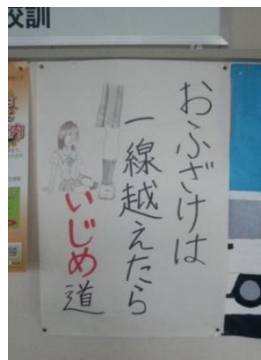 校訓
おふざけは
一線越えたら
いじめ道